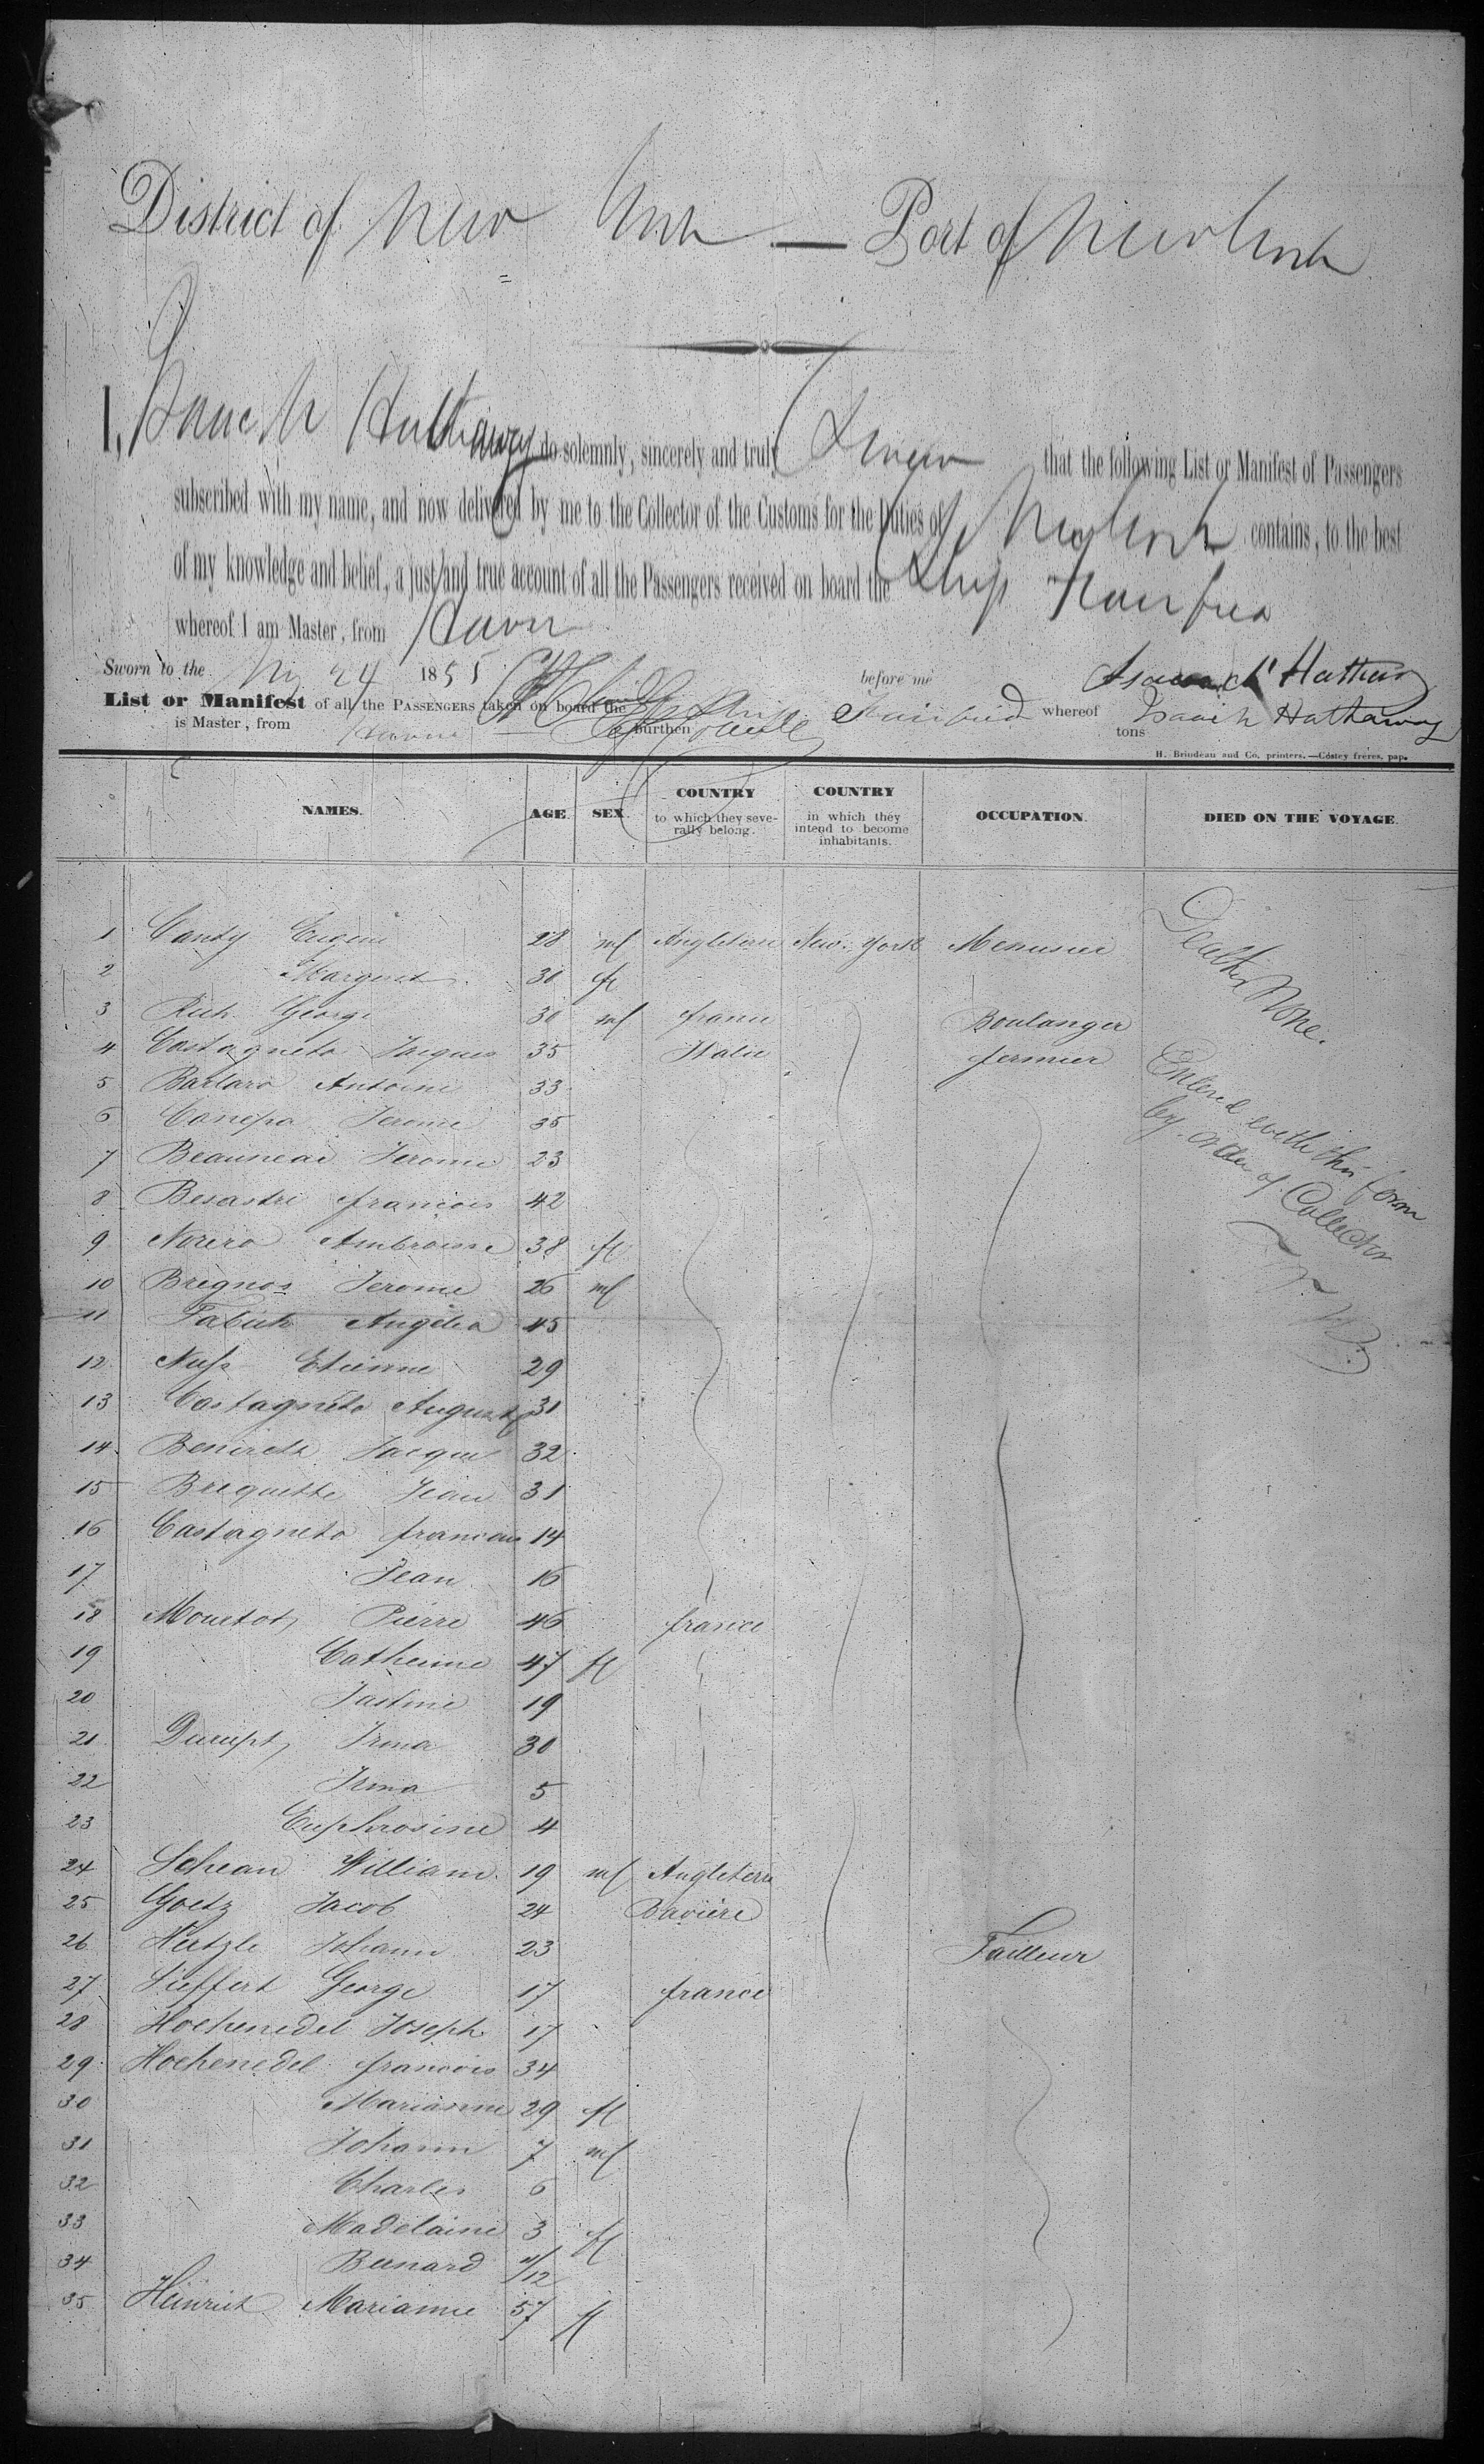 District of New York — Port of New York
I, Isaac H Hathaway do solemnly, sincerely and truly Swear that the following List or Manifest of Passengers
subscribed with my name, and now delivered by me to the Collector of the Customs for the Duties of New York contains, to the best
of my knowledge and belief, a just and true account of all the Passengers received on board the Ship Fairfield
whereof I am Master, from Havre
Sworn to the 24 1855 before me Isaac H Hathaway
List or Manifest of all the PASSENGERS taken on board the Ship whereof Isaac H Hathaway
is Master, from Havre burthen tons
H. Brindeau and Co, printers.—Costey frères, pap.
NAMES. AGE. SEX. COUNTRY to which they severally belong. COUNTRY in which they intend to become inhabitants. OCCUPATION. DIED ON THE VOYAGE.
1 Canty Eugene 28 m Angleterre New-York Menusier
2 Margaret 30 f
3 Rich George 30 m france Boulanger
4 Castagneto Jacques 35 Italie fermier
5 Barbaro Antoine 33
6 Canepa Jerome 35
7 Jerome 23
8 francois 42
9 Norero Ambroise 38 f
10 Bregnos Jerome 26 m
11 Angelia 45
12 Etienne 29
13 Castagneto Auguste 31
14 Jacque 32
15 Brequette Jean 31
16 Castagneto francois 14
17 Jean 16
18 Moutot, Pierre 46 france
19 Catherine 47 f
20 Justine 19
21 Irma 30
22 Irma 5
23 Euphrosine 4
24 William 19 m Angleterre
25 Goetz Jacob 24 Baviere
26 Hertzle Johann 23 Tailleur
27 Sieffert George 17 france
28 Hochenedel Joseph 17
29 Hochenedel francois 34
30 Marianne 29 f
31 Johann 7 m
32 Charles 6
33 Madelaine 3 f
34 Bernard /12
35 Heinrich Marianne 57 f
Deaths None.
Entered with this form
by order of Collector